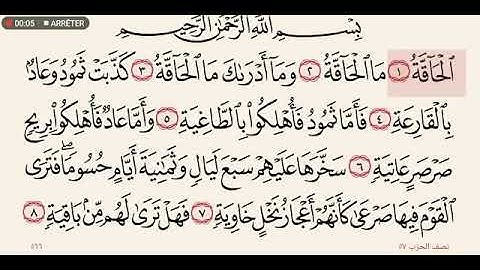 00:05 ARRÊTER
بِسْمِ ٱللَّهِ ٱلرَّحْمَٰنِ ٱلرَّحِيمِ
ٱلْحَآقَّةُ ١ مَا ٱلْحَآقَّةُ ٢ وَمَآ أَدْرَىٰكَ مَا ٱلْحَآقَّةُ ٣ كَذَّبَتْ ثَمُودُ وَعَادٌۢ
بِٱلْقَارِعَةِ ٤ فَأَمَّا ثَمُودُ فَأُهْلِكُوا۟ بِٱلطَّاغِيَةِ ٥ وَأَمَّا عَادٌ فَأُهْلِكُوا۟ بِرِيحٍ
صَرْصَرٍ عَاتِيَةٍ ٦ سَخَّرَهَا عَلَيْهِمْ سَبْعَ لَيَالٍ وَثَمَٰنِيَةَ أَيَّامٍ حُسُومًا ۖ فَتَرَى
ٱلْقَوْمَ فِيهَا صَرْعَىٰ كَأَنَّهُمْ أَعْجَازُ نَخْلٍ خَاوِيَةٍ ٧ فَهَلْ تَرَىٰ لَهُم مِّنۢ بَاقِيَةٍ ٨
نصف الحزب ٥٧
٥٦٦